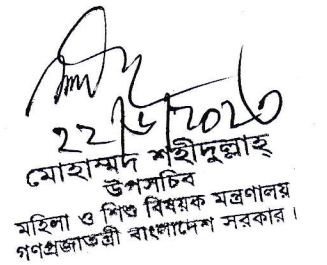 ২২/৬/২০২৩
মোহাম্মদ শহীদুল্লাহ্
উপসচিব
মহিলা ও শিশু বিষয়ক মন্ত্রণালয়
গণপ্রজাতন্ত্রী বাংলাদেশ সরকার।